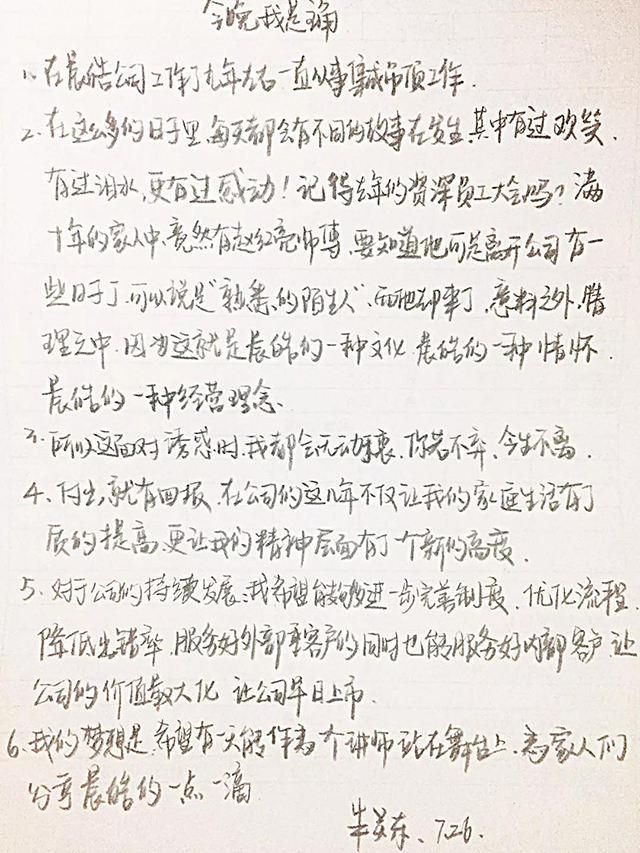 今晚我是主角
1、在晨皓公司工作了九年左右一直从事集成吊顶工作.
2、在这么多的日子里,每天都会有不同的故事在发生,其中有过欢笑,
有过泪水,更有过感动!记得去年的资深员工大会吗?满
十年的家人中,竟然有赵红亮师傅,要知道他可是离开公司有一
些日子了,可以说是“熟悉的陌生人”,而他却来了,意料之外,情
理之中,因为这就是晨皓的一种文化,晨皓的一种情怀.
晨皓的一种经营理念、
3、所以这面对诱惑时,我都会无动于衷,你若不弃,今生不离.
4、付出,就有回报,在公司的这几年不仅让我的家庭生活有了
质的提高,更让我的精神层面有了一个新的高度.
5、对于公司的持续发展:我希望能够进一步完善制度,优化流程,
降低出错率,服务好外部客户的同时也能服务好内部客户,让
公司的价值最大化,让公司早日上市.
6、我的梦想是,希望有一天能作为一个讲师站在舞台上,为家人们
分享晨皓的一点一滴
7.26.